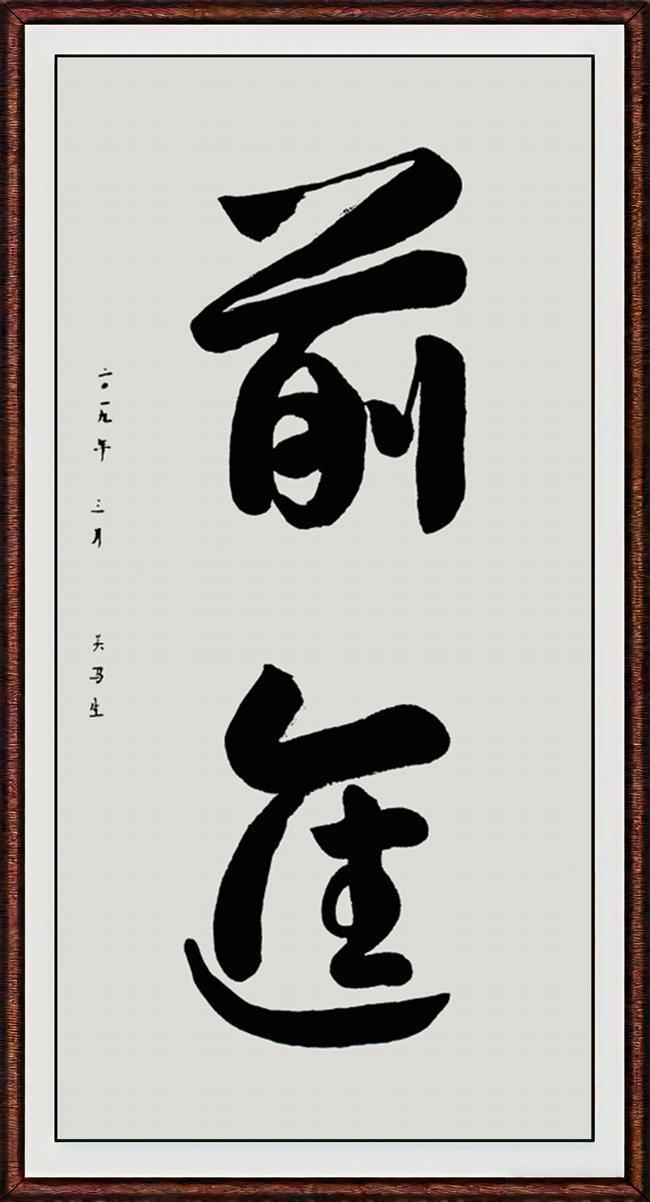 前進
二〇一九年 三月 马生